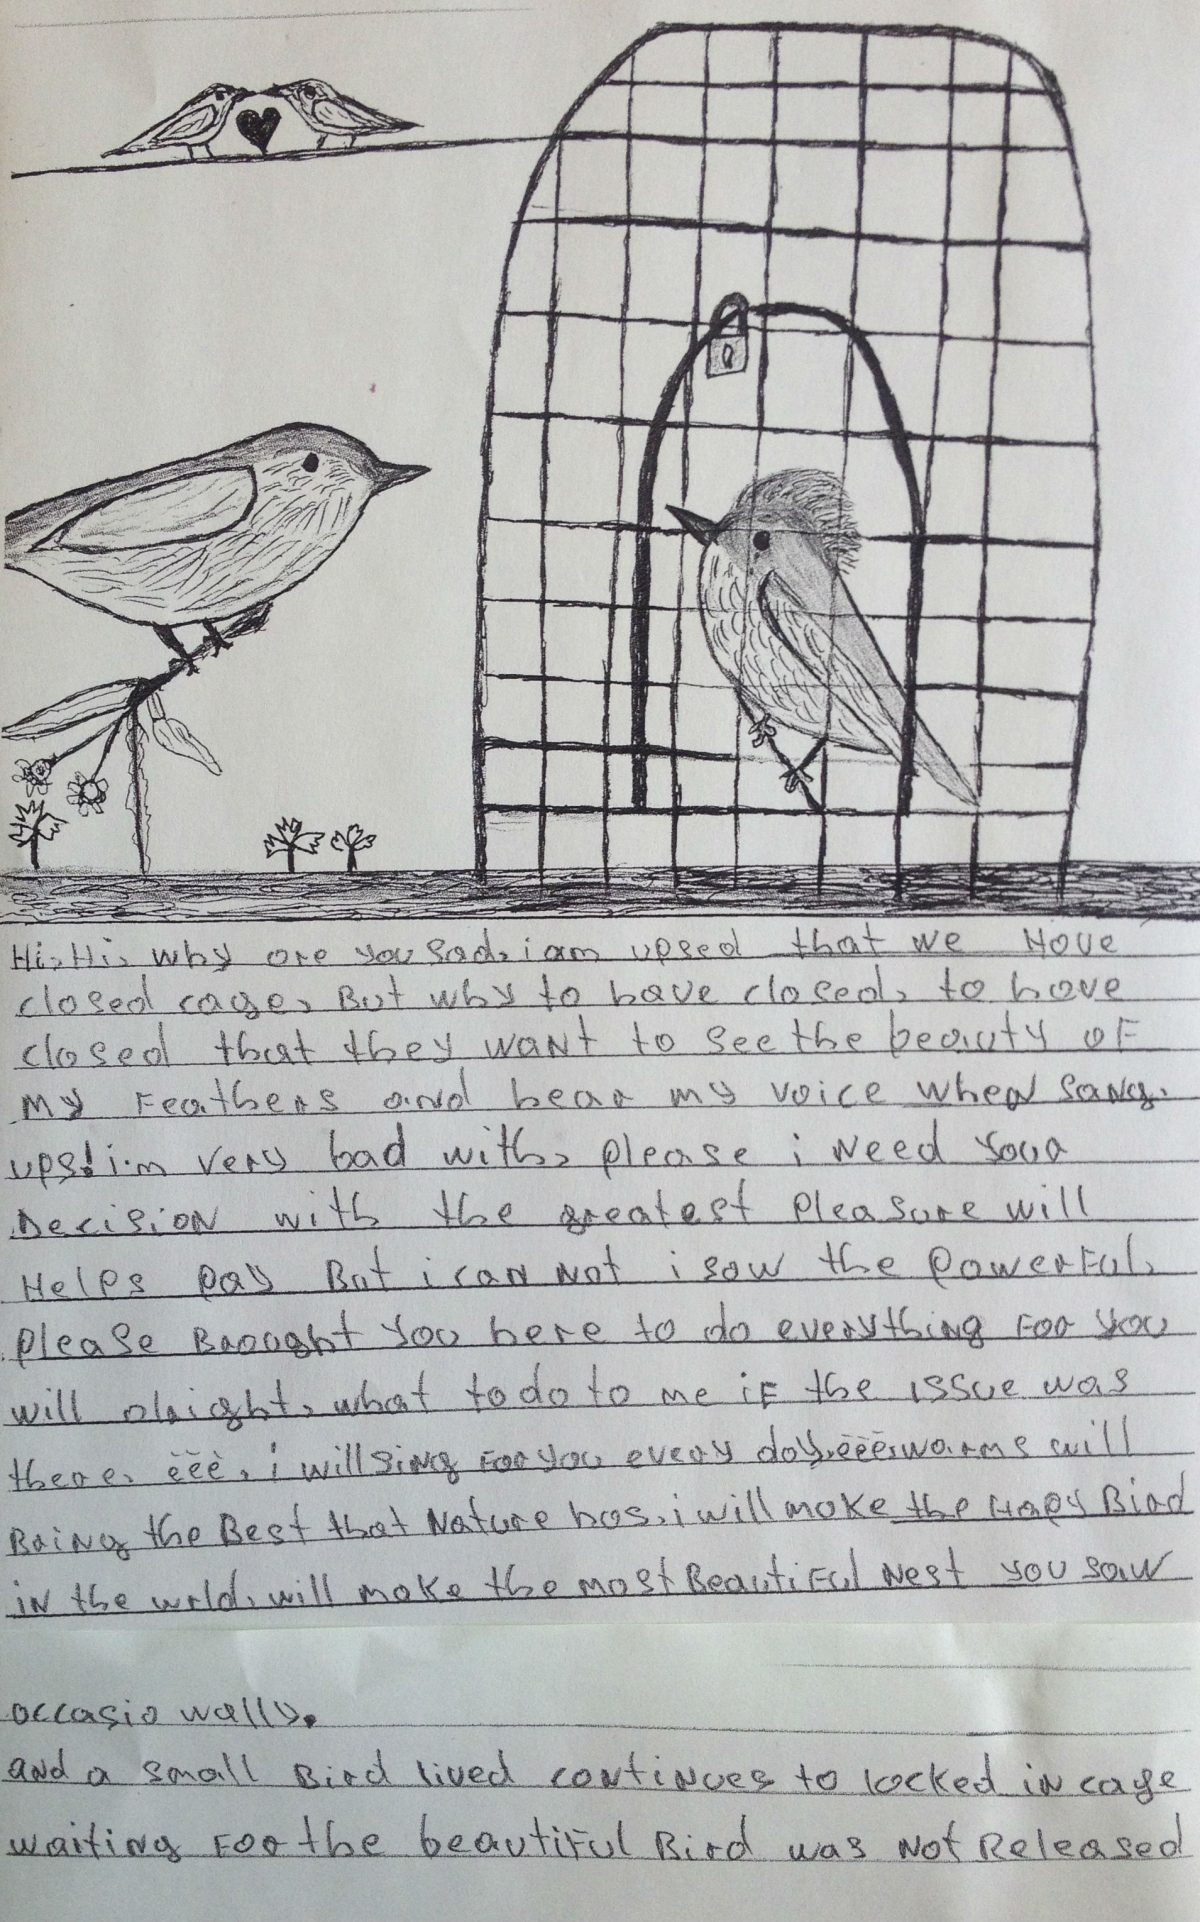 Hi, Hi, why are you sad, i am upsed that we Have
closed cage, But why to have closed, to have
closed that they want to see the beauty of
my Feathers and hear my voice when sang.
ups! i.m very bad with, please i Need your
Decision with the greatest pleasure will
Helps pay But i can not i saw the powerful,
please Brought you here to do everything For you
will alright, what to do to me if the issue was
there, ëëë, i will sing For you every day, ëëë, warms will
Bring the Best that Nature has, i will make the Hapy Bird
in the wrld, will make the most Beautiful Nest you saw
occasio wally.
and a small Bird lived continues to locked in cage
waiting For the beautiful Bird was Not Released